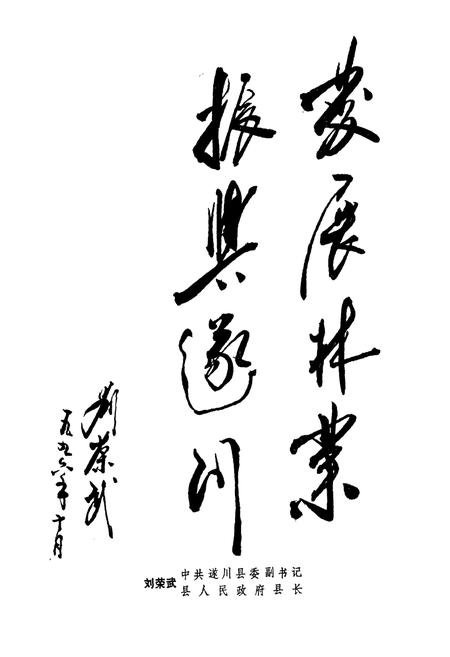 發展林業
振興遂川
劉荣武
一九九六年十月
刘荣武 中共遂川县委副书记
县人民政府县长